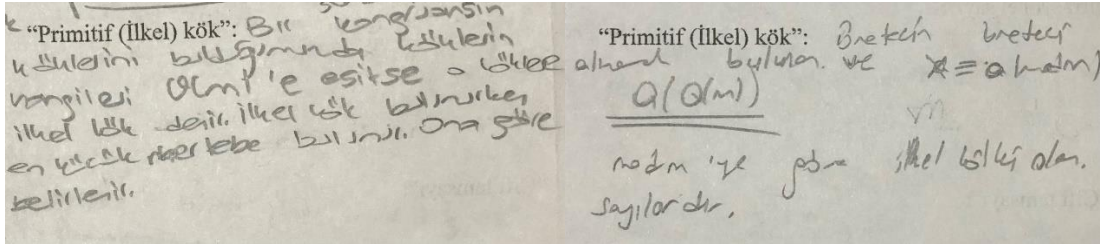 "Primitif (İlkel) kök": Bir kongrüansın
köklerini bulduğumuzda köklerin
hangileri Q(m)'e eşitse o kökler
ilkel kök denir. İlkel kök bulunurken
en küçük mertebe bulunur. Ona göre
belirlenir.
"Primitif (İlkel) kök": üreteci
alınarak bulunan. ve x ≡ a (modm)
Q(Q(m))
m
modm 'ye göre ilkel kökü olan.
sayılardır.